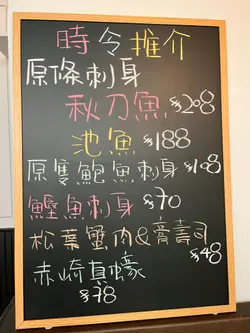 時令推介
原條刺身
秋刀魚 $208
池魚 $188
原隻鮑魚刺身 $108
鰹魚刺身 $70
松葉蟹肉&膏壽司
$48
赤崎真蠔
$78